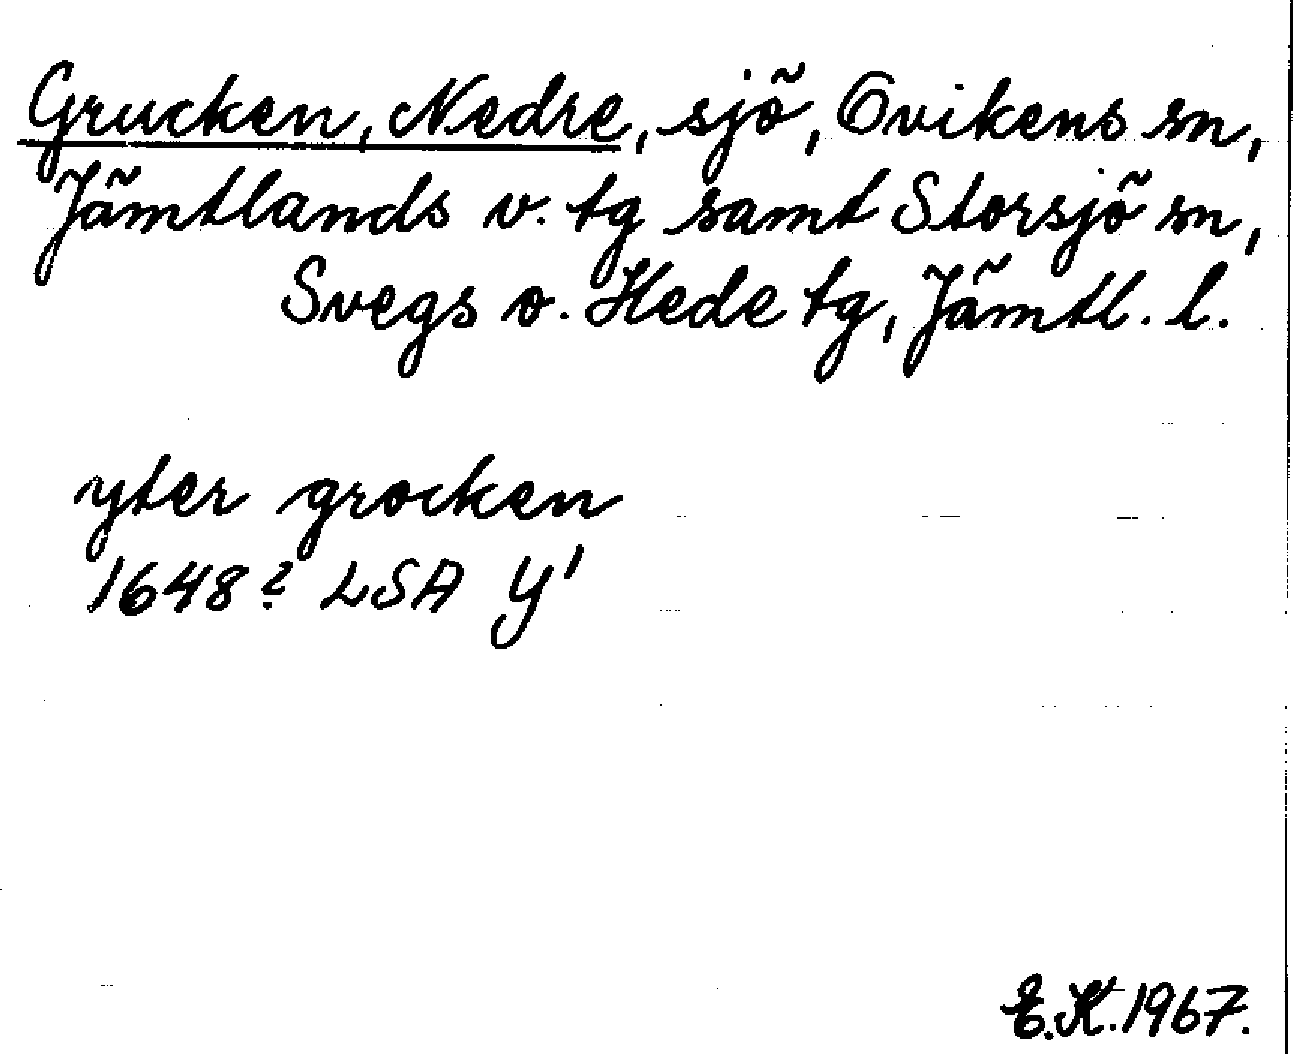 Grucken, Nedre, sjö, Ovikens sn,
Jämtlands v. tg samt Storsjö sn,
Svegs o. Hede tg, Jämtl. l.
yter grocken
1648? LSA Y'
E.K. 1967.